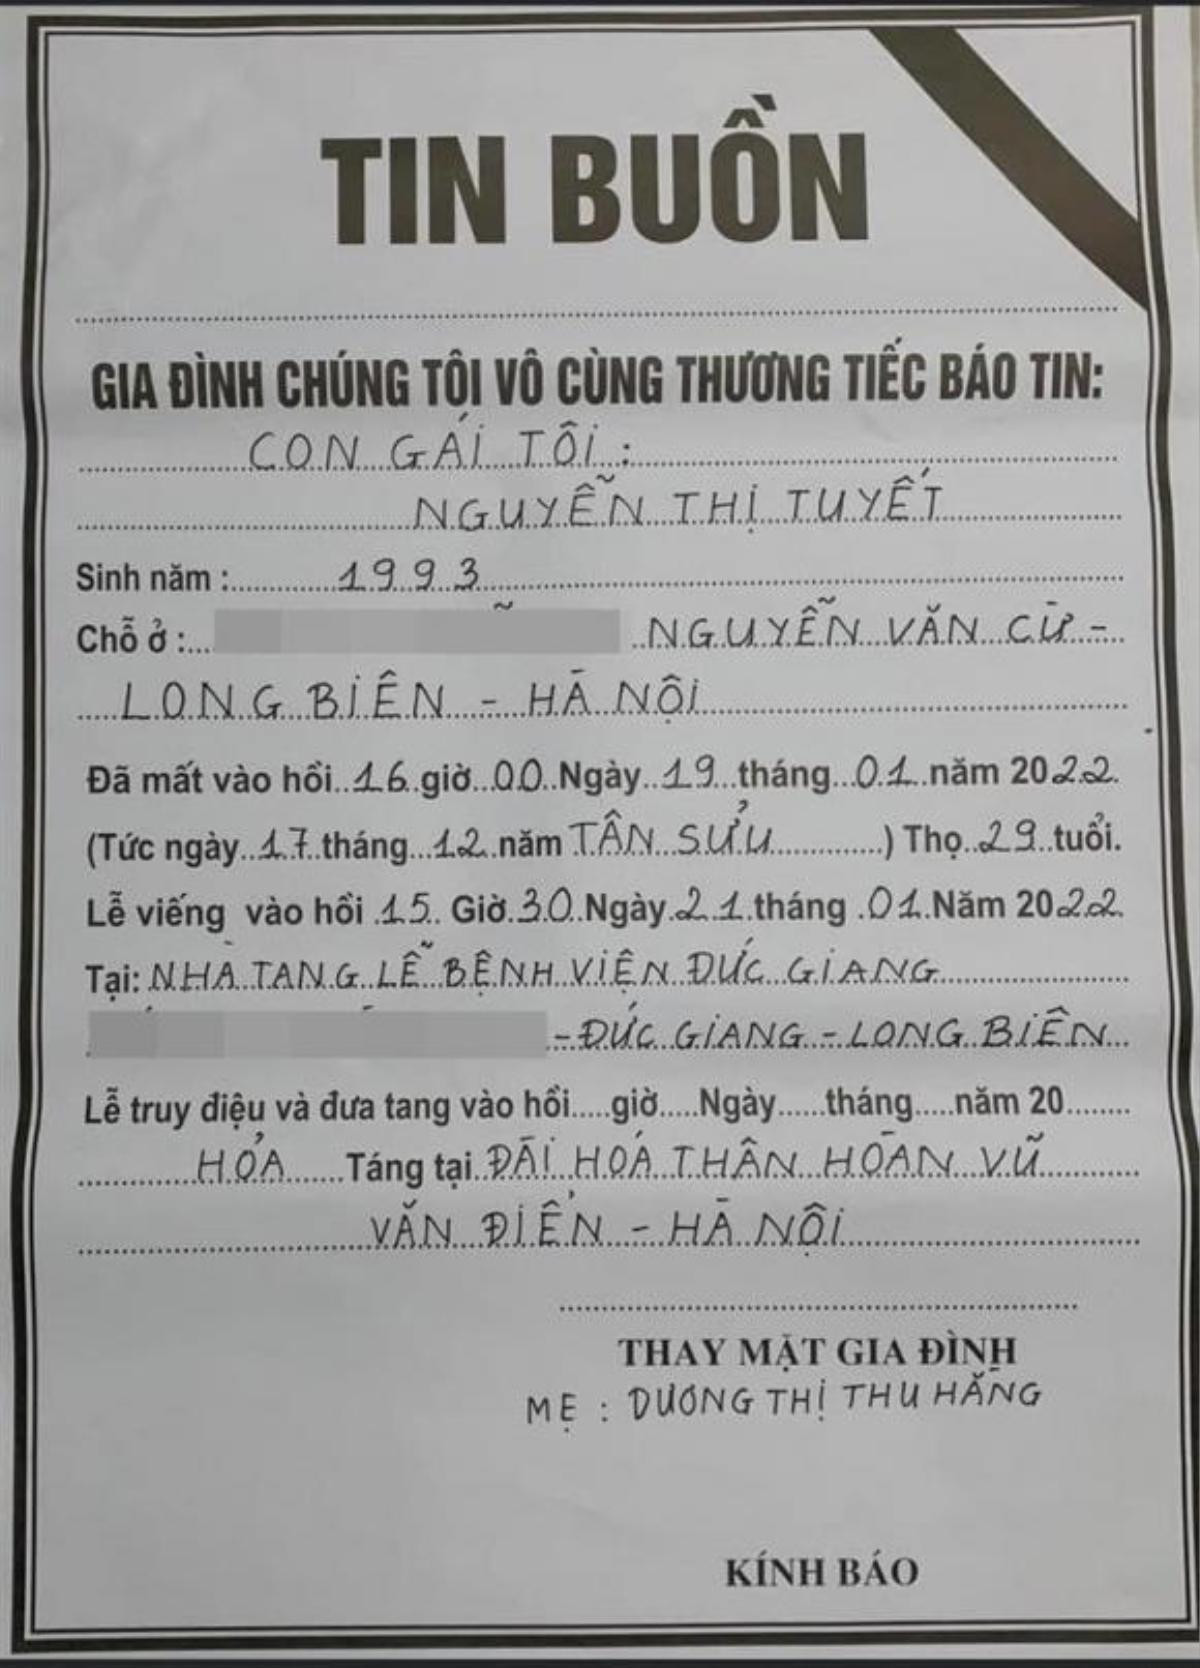 TIN BUỒN
GIA ĐÌNH CHÚNG TÔI VÔ CÙNG THƯƠNG TIẾC BÁO TIN:
CON GÁI TÔI :
NGUYỄN THỊ TUYẾT
Sinh năm : 1993
Chỗ ở : NGUYỄN VĂN CỪ -
LONG BIÊN - HÀ NỘI
Đã mất vào hồi 16 giờ 00 Ngày 19 tháng 01 năm 2022.
(Tức ngày 17 tháng 12 năm TÂN SỬU ) Thọ 29 tuổi.
Lễ viếng vào hồi 15 Giờ 30 Ngày 21 tháng 01 Năm 2022
Tại: NHÀ TANG LỄ BỆNH VIỆN ĐỨC GIANG
- ĐỨC GIANG - LONG BIÊN
Lễ truy điệu và đưa tang vào hồi.....giờ.....Ngày......tháng.....năm 20........
HỎA Táng tại ĐÀI HÓA THÂN HOÀN VŨ
VĂN ĐIỂN - HÀ NỘI
THAY MẶT GIA ĐÌNH
MẸ : DƯƠNG THỊ THU HẰNG
KÍNH BÁO